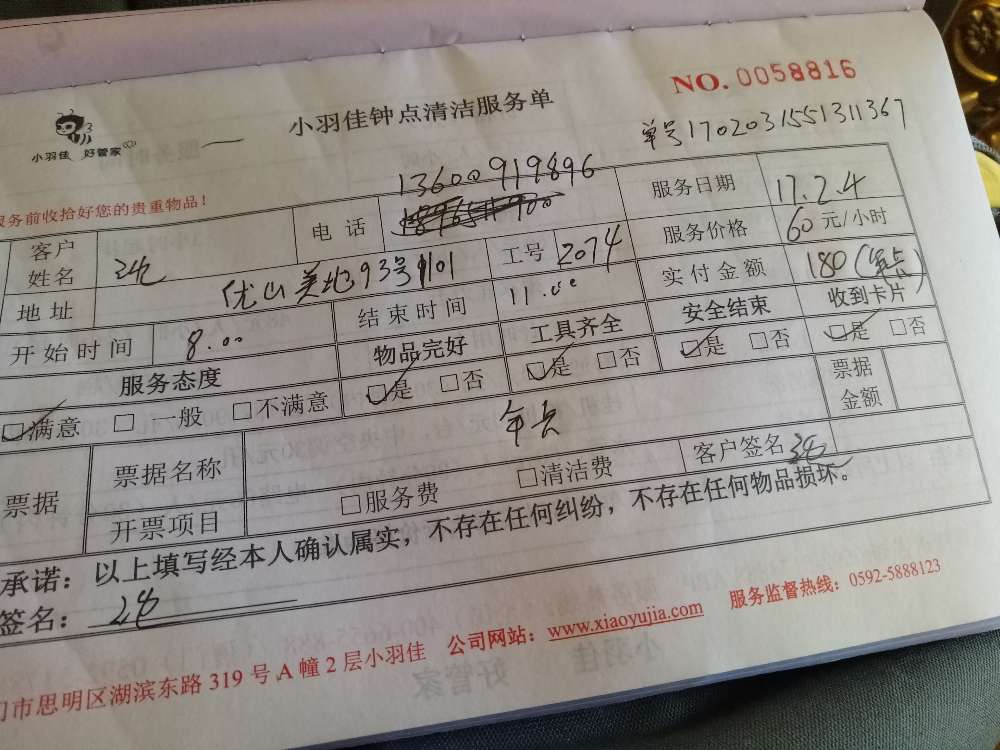 NO. 0058816
小羽佳钟点清洁服务单
小羽佳 好管家
单号1702031551311367
服务前收拾好您的贵重物品!
客户姓名
电话 13600919896
服务日期 17.2.4
地址 优山美地93号1101
工号 2074
服务价格 60元/小时
开始时间 8.00
结束时间 11.00
实付金额 180
服务态度 物品完好 工具齐全 安全结束 收到卡片
☑满意 □一般 □不满意 ☑是 □否 ☑是 □否 ☑是 □否 ☑是 □否
票据 票据名称 票据金额
开票项目 □服务费 □清洁费 客户签名
承诺:以上填写经本人确认属实,不存在任何纠纷,不存在任何物品损坏。
签名:
门市思明区湖滨东路 319 号 A 幢 2 层小羽佳 公司网站:www.xiaoyujia.com 服务监督热线:0592-5888123